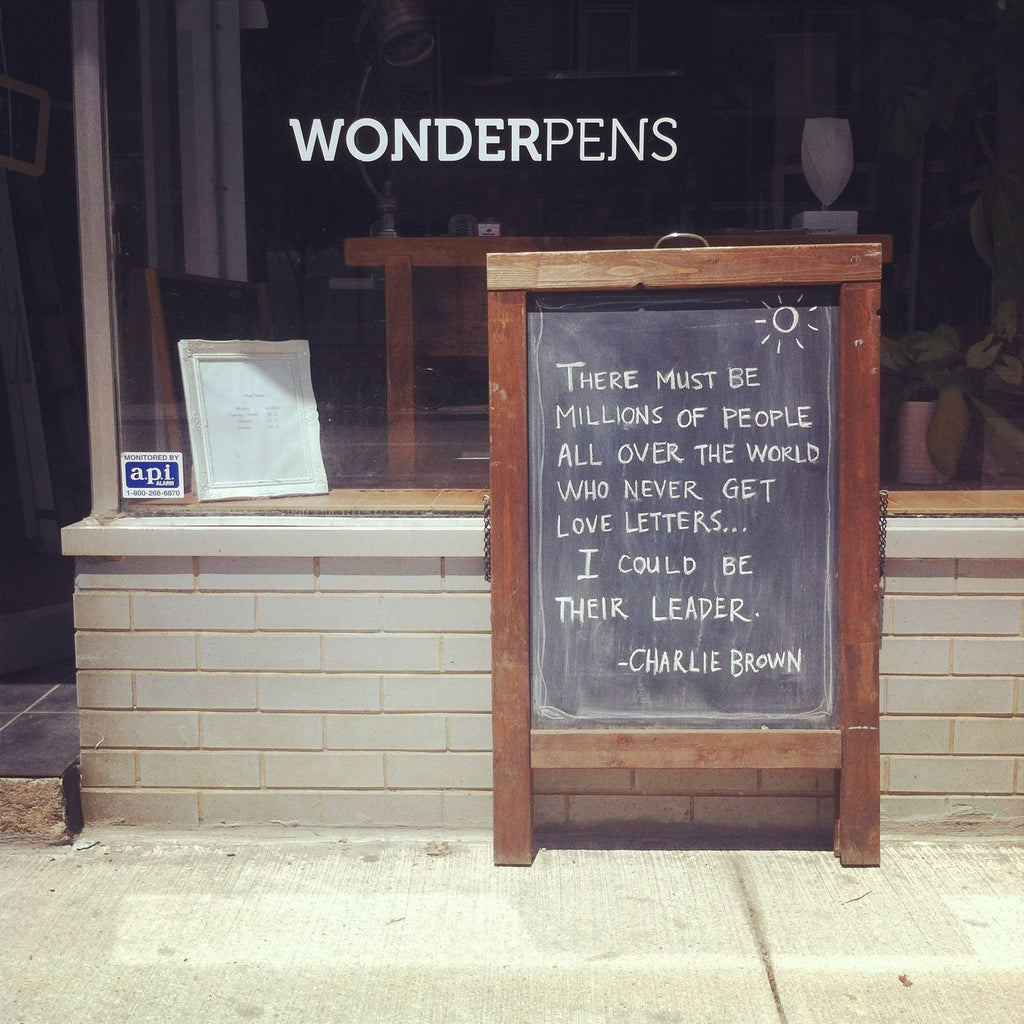 WONDERPENS
THERE MUST BE
MILLIONS OF PEOPLE
ALL OVER THE WORLD
WHO NEVER GET
LOVE LETTERS...
I COULD BE
THEIR LEADER.
-CHARLIE BROWN
MONITORED BY
a.p.i.
ALARM
1-800-268-6870